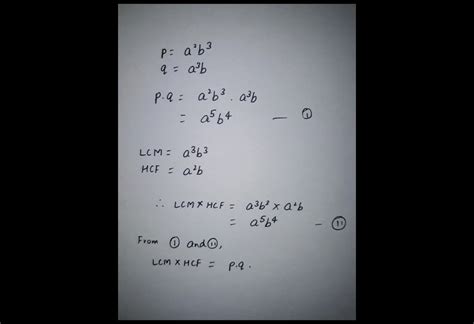 p = a²b³
q = a³b
p.q = a²b³ . a³b
= a⁵b⁴ — (i)
LCM = a³b³
HCF = a²b
∴ LCM × HCF = a³b³ × a²b
= a⁵b⁴ — (ii)
From (i) and (ii),
LCM × HCF = p.q.